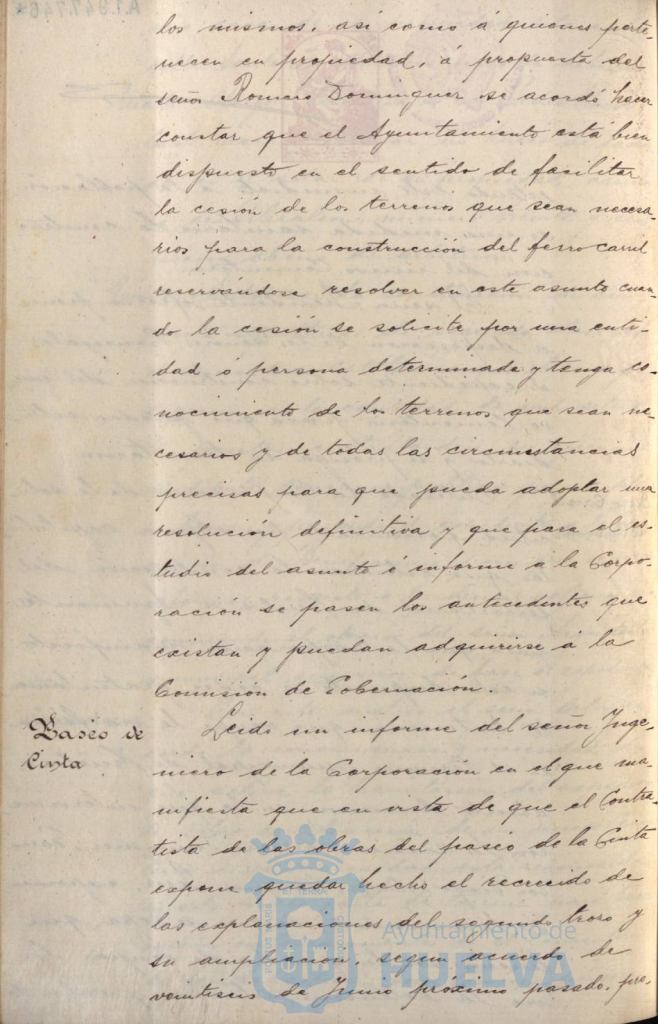 los mismos, así como á quienes perte-
necen en propiedad, á propuesta del
señor Romero Dominguez se acordó hacer
constar que el Ayuntamiento está bien
dispuesto en el sentido de facilitar
la cesión de los terrenos que sean necesa-
rios para la construcción del ferro carril
reservándose resolver en este asunto cuan-
do la cesión se solicite por una enti-
dad ó persona determinada y tenga co-
nocimiento de los terrenos que sean ne-
cesarios y de todas las circunstancias
precisas para que pueda adoptar una
resolución definitiva y que para el es-
tudio del asunto é informe a la Corpo-
ración se pasen los antecedentes que
existan y puedan adquirirse á la
Comisión de Gobernación.
Paseo de
Cinta
Leido un informe del señor Inge-
niero de la Corporación en el que ma-
nifiesta que en vista de que el Contra-
tista de las obras del paseo de la Cinta
expone quedar hecho el recrecido de
las explanaciones del segundo trozo y
su ampliación, segun acuerdo de
veintiseis de Junio próximo pasado, pro-
Ayuntamiento de
HUELVA